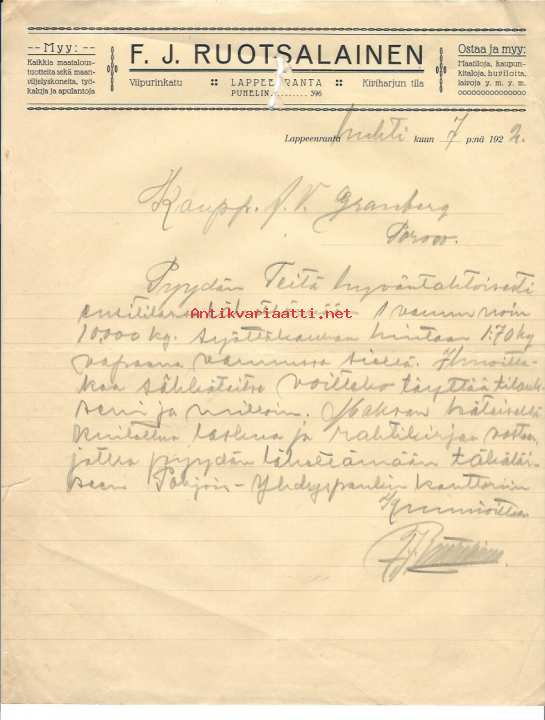 -- Myy: --
Kaikkia maatalous-
tuotteita sekä maan-
viljelyskoneita, työ-
kaluja ja apulantoja
F. J. RUOTSALAINEN
Viipurinkatu :: LAPPEENRANTA :: Kiviharjun tila
PUHELIN ........ 396
Ostaa ja myy:
Maatiloja, kaupun-
kitaloja, huviloita,
laivoja y. m. y. m.
Lappeenranta huhti kuun 7 p:nä 1922.
Kaupp. J. V. Granberg
Porvoo.
Pyydän Teitä hyväntahtoisesti
1 vaunu noin
10,000 kg. syöttökauraa hintaan 1:70 kg
vapaana vaunussa siellä. Ilmoitta-
kaa sähköteitse voitteko täyttää tilauk-
seni ja milloin. Maksan käteisellä
kuitattua laskua ja rahtikirjaa vastaan
jotka pyydän lähettämään täkäläi-
seen Pohjois-Yhdyspankin konttoriin
Kunnioittaen
F. J. Ruotsalainen
Antikvariaatti.net